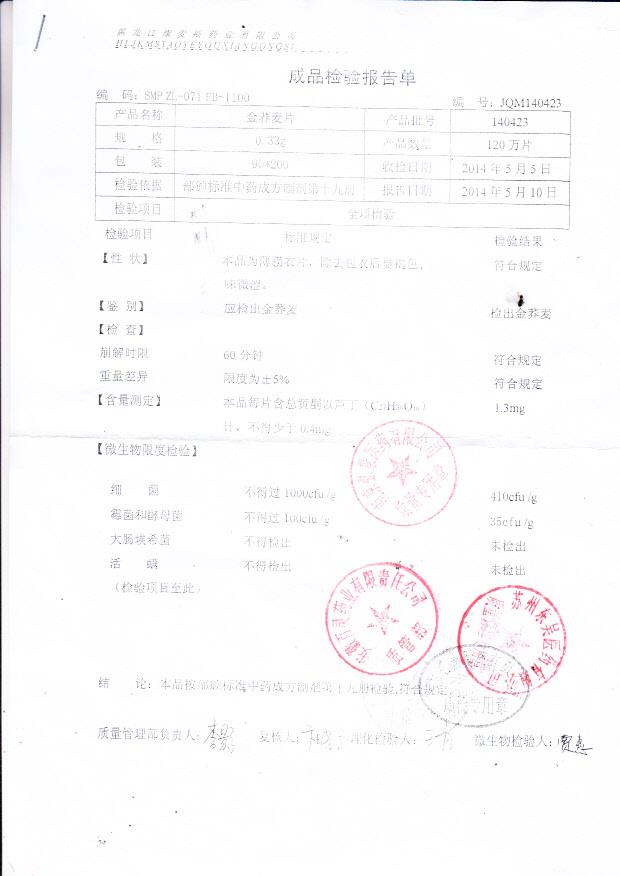 黑龙江康麦斯药业有限公司
HLJKMSYAOYEYOUXIANGONGSI
成品检验报告单
编 码：SMP ZL-071 PB-1100
编 号：JQM140423
产品名称 金荞麦片 产品批号 140423
规 格 0.33g 产品数量 120 万片
包 装 90*200 收检日期 2014 年 5 月 5 日
检验依据 部颁标准中药成方制剂第十九册 报告日期 2014 年 5 月 10 日
检验项目 全项检验
检验项目 标准规定 检验结果
【性 状】 本品为薄膜衣片，除去包衣后显褐色， 符合规定
味微涩。
【鉴 别】 应检出金荞麦 检出金荞麦
【检 查】
崩解时限 60 分钟 符合规定
重量差异 限度为±5% 符合规定
【含量测定】 本品每片含总黄酮以芦丁（C₂₇H₃₀O₁₆） 1.3mg
计，不得少于 0.4mg
【微生物限度检验】
细 菌 不得过 1000cfu /g 410cfu /g
霉菌和酵母菌 不得过 100cfu /g 35cfu /g
大肠埃希菌 不得检出 未检出
活 螨 不得检出 未检出
（检验项目至此）
安徽百灵药业有限责任公司
苏州东吴医药有限公司
质检专用章
结 论：本品按部颁标准中药成方制剂第十九册检验,符合规定
质量管理部负责人： 复核人： 理化检验人： 微生物检验人：